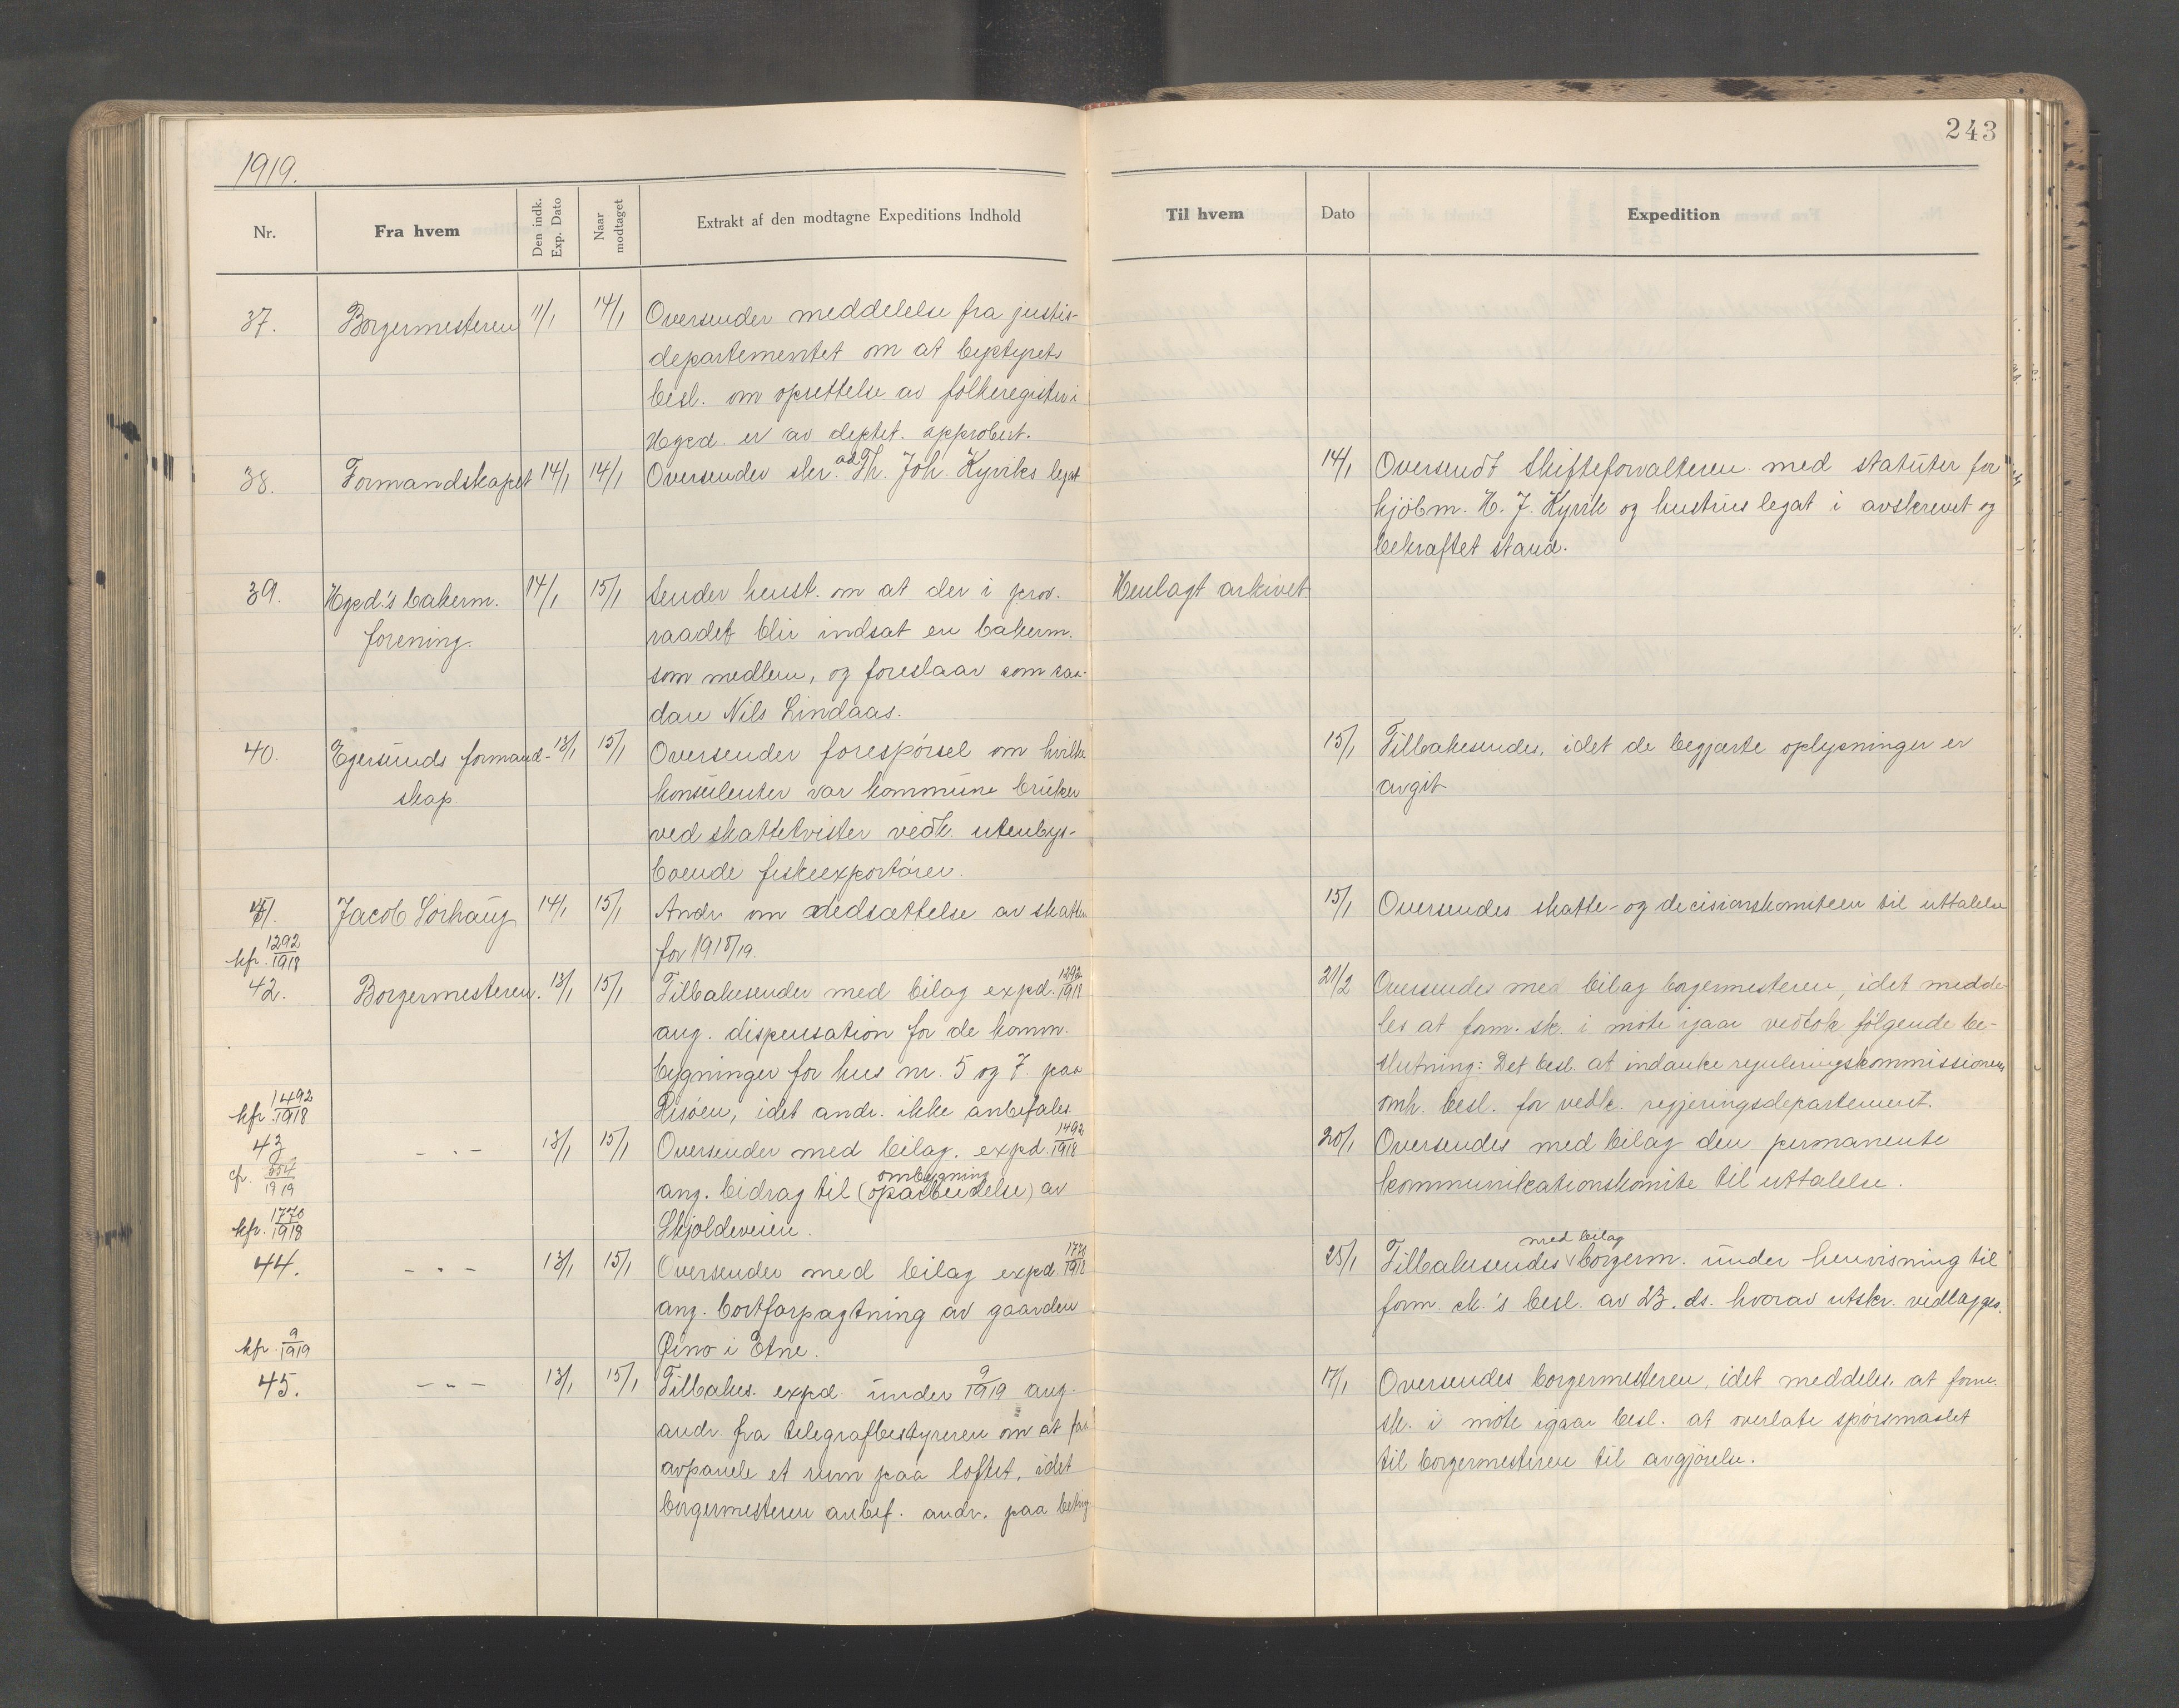 1919.
Nr.
Fra hvem
Den indk. Exp. Dato
Naar modtaget
Extrakt af den modtagne Expeditions Indhold
37.
Borgermesteren
11/1
14/1
Oversender meddelelse fra justis-
departementet om at bystyrets
besl. om oprettelse av folkeregister i
Hgsd. er av deptet. approbert.
38.
Formandskapet
14/1
14/1
Oversender skr. ad Th. Joh. Kyviks legat
39.
Hgsd.'s bakerm.
forening.
14/1
15/1
Sender henst. om at der i prov.
raadet blir indsat en bakerm.
som medlem, og foreslaar som saa-
dan Nils Lindaas.
40.
Egersunds formand-
skap.
13/1
15/1
Oversender forespørsel om hvilke
konsulenter vor kommune bruker
ved skattetvister vedk. utenbys-
boende fiskeexportører.
41.
kfr. 1292/1918
Jacob Sørhaug
14/1
15/1
Andr. om nedsættelse av skatten
for 1918/19.
42.
Borgermesteren.
13/1
15/1
Tilbakesender med bilag expd. 1292/1918
ang. dispensation for de komm.
bygninger for hus nr. 5 og 7. paa
Risøen, idet andr. ikke anbefales.
kfr. 1492/1918
43
cfr. 354/1919
- " -
13/1
15/1
Oversender med bilag. expd. 1492/1918
ang. bidrag til (oparbeidelse) av
ombygning
Skjoldeveien.
kfr. 1770/1918
44.
- " -
13/1
15/1
Oversender med bilag expd. 1770/1918
ang. bortforpagtning av gaarden
Øino i Etne.
kfr. 9/1919
45.
- " -
13/1
15/1
Tilbakes. expd. under 9/1919 ang.
andr. fra telegrafbestyreren om at faa
avpanele et rum paa loftet, idet
borgermesteren anbef. andr. paa
243
Til hvem
Dato
Expedition
14/1
Oversendt Skifteforvalteren med statuter for
kjøbm. H. J. Kyvik og hustrus legat i avskrevet og
bekræftet stand.
Henlagt arkivet
15/1
Tilbakesendes, idet de begjærte oplysninger er
avgit
15/1
Oversendes skatte- og decisionskomiteen til uttalelse
21/2
Oversendes med bilag borgermesteren, idet medde-
les at form. sk. i møte igaar vedtok følgende be-
slutning: Det besl. at indanke reguleringskommissionens
omh. besl. for vedk. regjeringsdepartement.
20/1
Oversendes med bilag den permanente
kommunikationskomite til uttalelse.
25/1
med bilag
Tilbakesendes borgerm. under henvisning til
form. sk.'s besl. av 23. ds. hvorav utskr. vedlægges.
17/1
Oversendes borgermesteren, idet meddeles. at form.
sk. i møte igaar besl. at overlate spørsmaalet
til borgermesteren til avgjørelse.